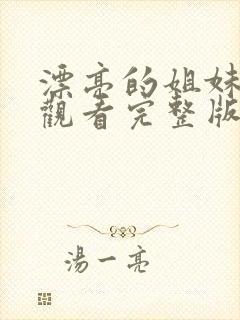 漂亮的姐妹
觀看完整版
湯一亮